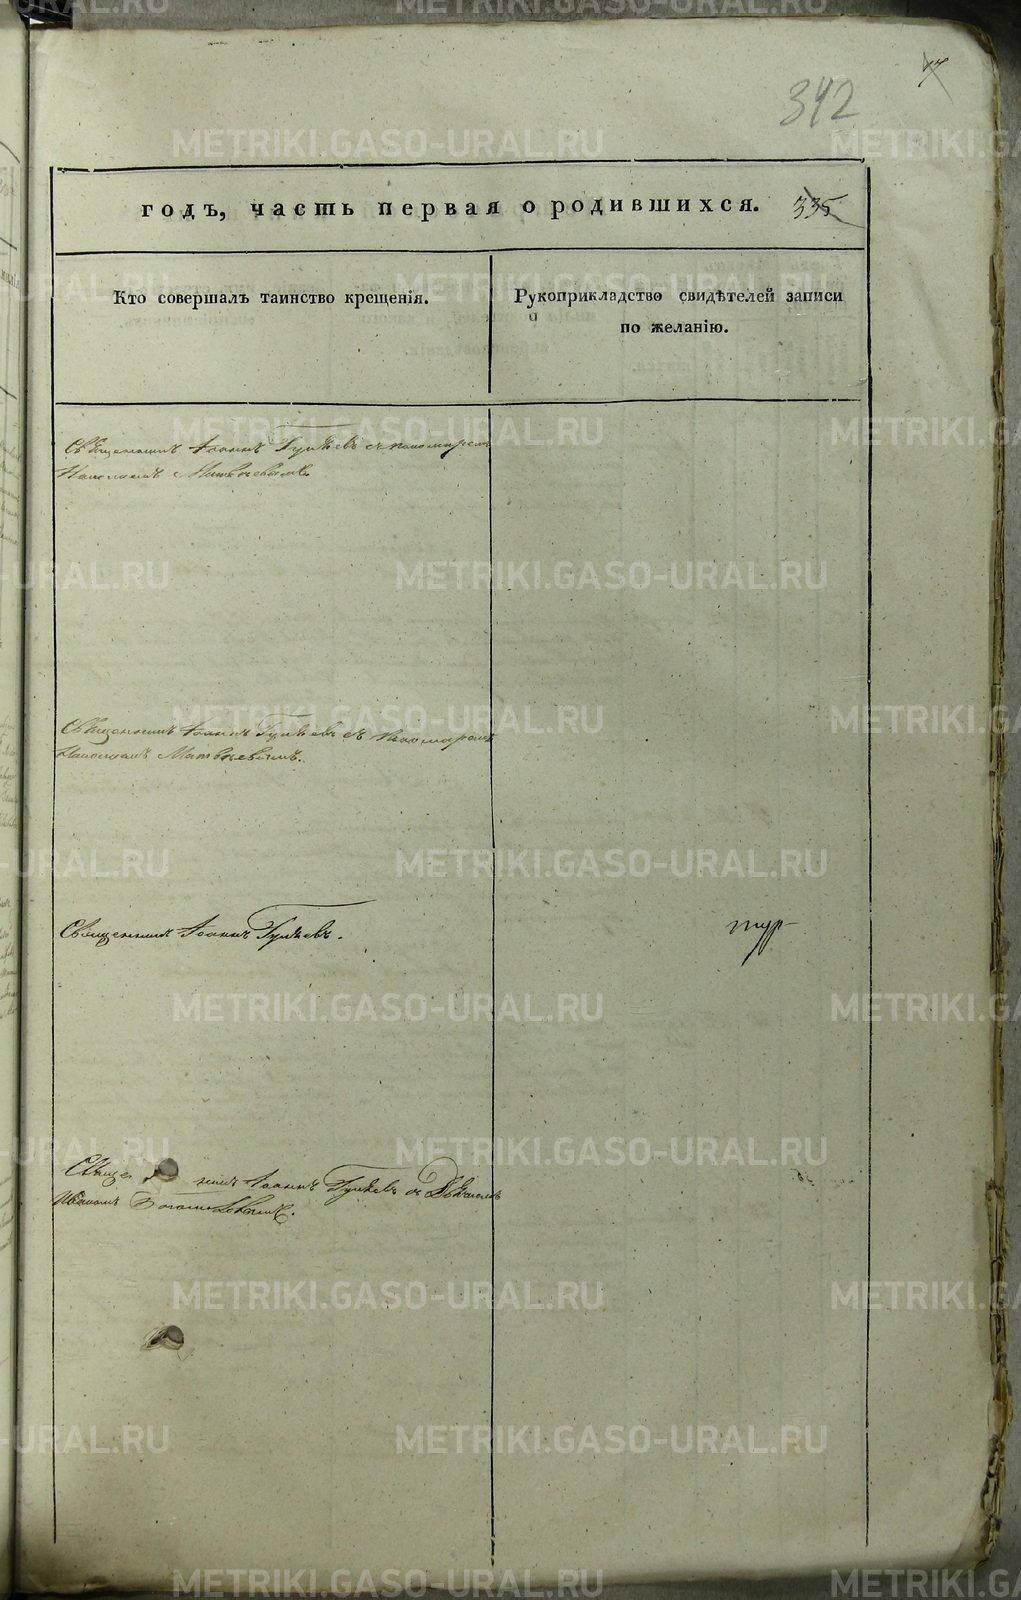 342
годъ, часть первая о родившихся. 335
Кто совершалъ таинство крещенія.
Рукоприкладство свидѣтелей записи
по желанію.
Священникъ Іоаннъ Гуляевъ съ пономаремъ
Матвѣевымъ.
Священникъ Іоаннъ Гуляевъ съ пономаремъ
Матвѣевымъ.
Священникъ Іоаннъ Гуляевъ.
Свяще никъ Іоаннъ Гуляевъ съ
Иваномъ
METRIKI.GASO-URAL.RU